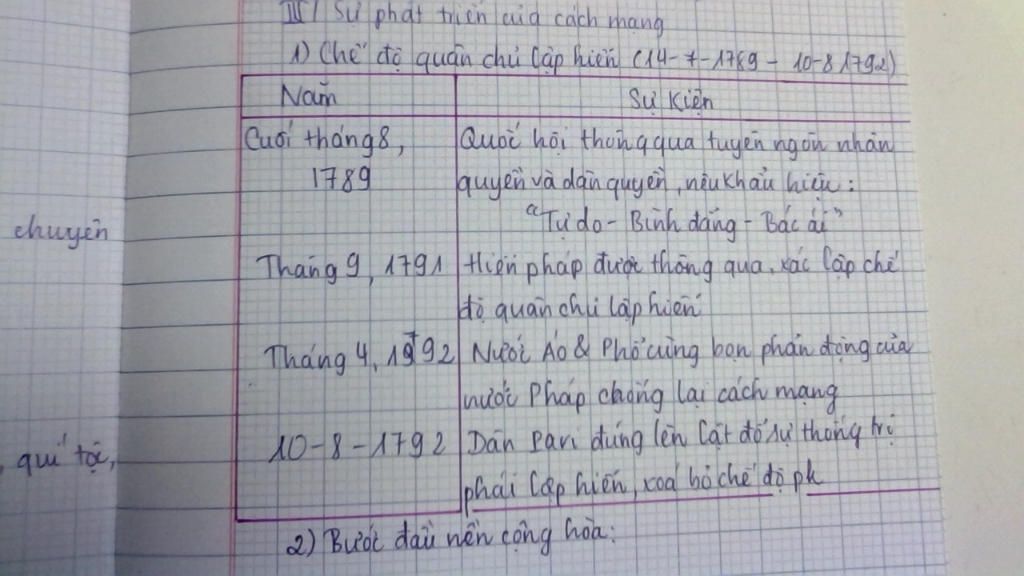 III / Sự phát triển của cách mạng
1) Chế độ quân chủ lập hiến (14-7-1789 - 10-8 1792)
Năm
Sự kiện
Cuối tháng 8,
1789
Quốc hội thông qua tuyên ngôn nhân
quyền và dân quyền, nêu khẩu hiệu:
"Tự do - Bình đẳng - Bác ái"
chuyên
Tháng 9, 1791
Hiến pháp được thông qua, xác lập chế
độ quân chủ lập hiến
Tháng 4, 1792
Nước Áo & Phổ cùng bọn phản động của
nước Pháp chống lại cách mạng
10-8-1792
Dân Pari đứng lên lật đổ sự thống trị
phái lập hiến, xoá bỏ chế độ pk
, quí tộc,
2) Bước đầu nền cộng hòa: